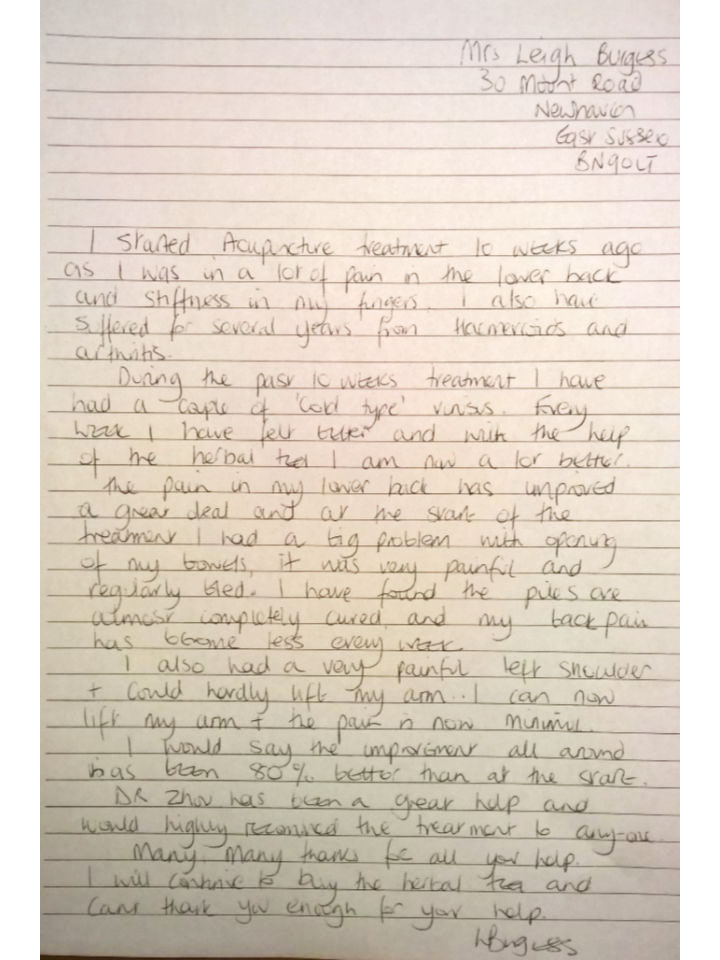 Mrs Leigh Burgess
30 Mount Road
Newhaven
East Sussex
BN9 0LT
I started Acupuncture treatment 10 weeks ago
as I was in a lot of pain in the lower back
and stiffness in my fingers. I also have
suffered for several years from Haemerroids and
arthritis.
During the past 10 weeks treatment I have
had a couple of 'Cold type' viruses. Every
week I have felt better and with the help
of the herbal tea I am now a lot better.
The pain in my lower back has improved
a great deal and at the start of the
treatment I had a big problem with opening
of my bowels, it was very painful and
regularly bled. I have found the piles are
almost completely cured, and my back pain
has become less every week.
I also had a very painful left shoulder
+ could hardly lift my arm.. I can now
lift my arm + the pain is now minimul.
I would say the improvement all around
has been 80% better than at the start.
DR Zhou has been a great help and
would highly the treatment to any-one.
Many, Many thanks for all your help.
I will continue to buy the herbal tea and
cant thank you enough for your help.
LBurgess